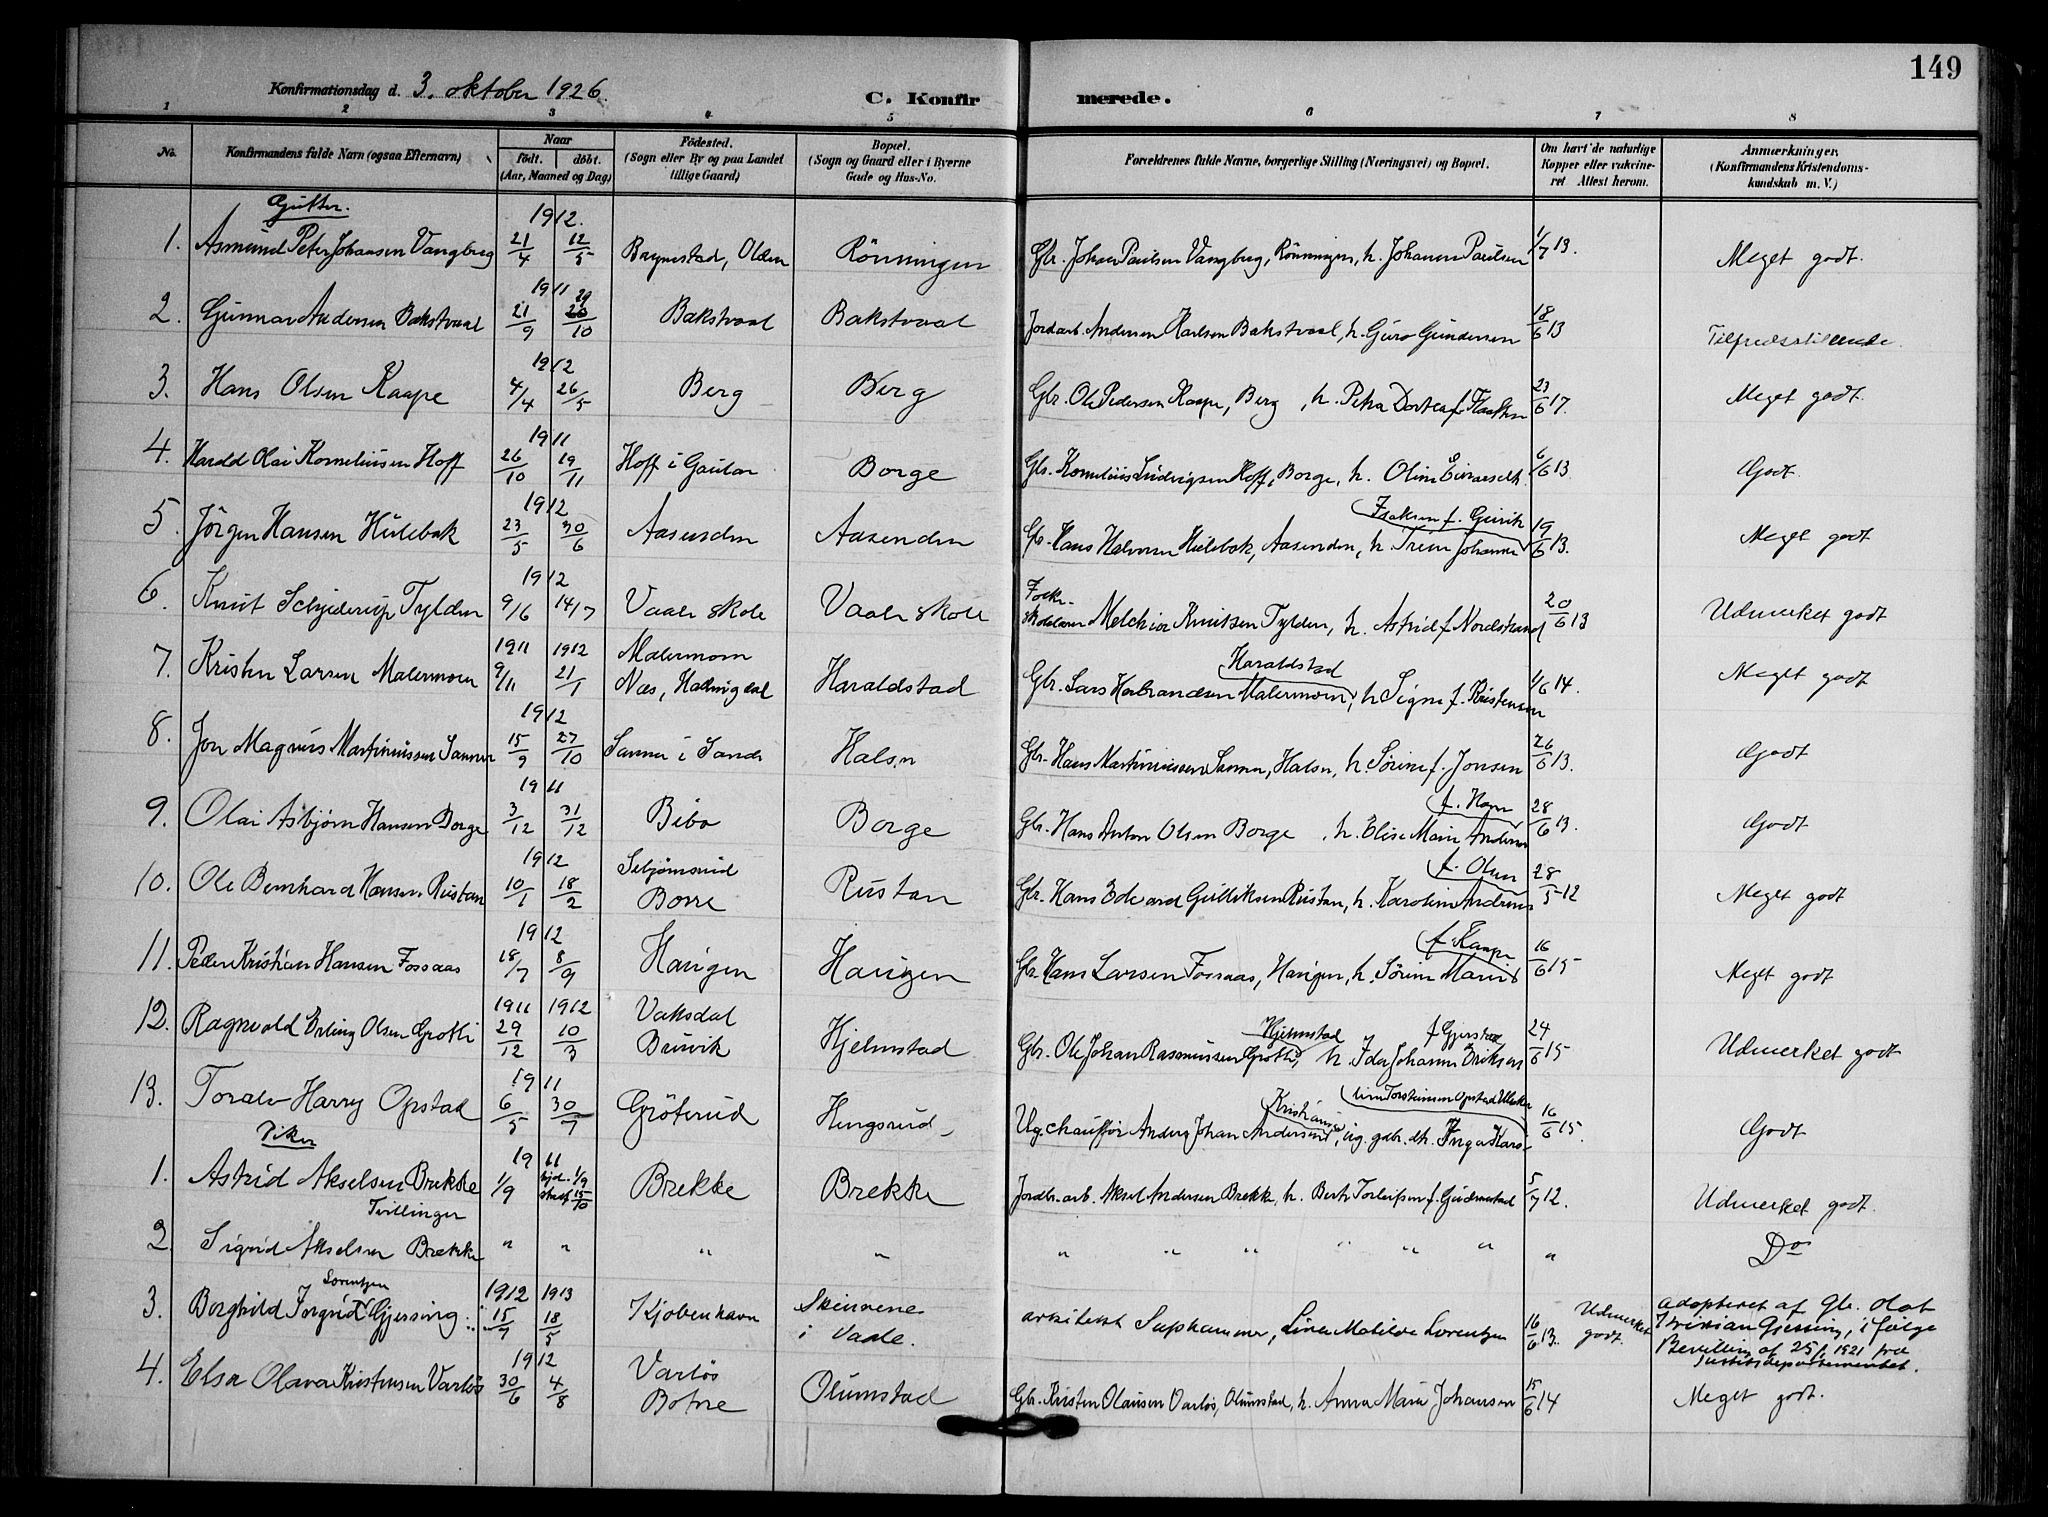 149
Konfirmationsdag d. 3. oktober 1926.
C. Konfirmerede.
1 2 3 4 5 6 7 8
No. Konfirmandens fulde Navn (ogsaa Efternavn) Naar födt. döbt. (Aar, Maaned og Dag) Födested. (Sogn eller By og paa Landet tillige Gaard) Bopæl. (Sogn og Gaard eller i Byerne Gade og Hus-No. Forældrenes fulde Navne, borgerlige Stilling (Næringsvei) og Bopæl. Om havt de naturlige Kopper eller vakcineret Attest herom. Anmærkninger, (Konfirmandens Kristendomskundskab m. V.)
Gutter.
1912.
1. Asmund Peter Johansen Vangberg 21/4 12/5 Olden Rönningen Gbr. Johan Paulsen Vangberg, Rönningen, h. Johanne Paulsen 1/7 13. Meget godt.
1911
2. Gunnar Andersen Bakstvaal 21/9 29/10 Bakstvaal Bakstvaal Jordarb. Andersen Karlsen Bakstvaal, h. Guro Gundersen 18/6 13 Tilfredsstillende
1912
3. Hans Olsen Kaape 4/4 26/5 Berg Berg Gbr. Ole Pedersen Kaape, Berg, h. Petra Dortea f. 23/6 17. Meget godt.
1911
4. Harald Olai Korneliussen Hoff 26/10 19/11 Hoff i Gautar Borge Gbr. Kornelius Ludvigsen Hoff, Borge, h. Oline 6/6 13 Godt.
1912 Isaksen f.
5. Jörgen Hansen Hulebak 23/5 30/6 Aasenden Aasenden Gbr. Hans Halvorsen Hulebak, Aasenden, h. Trine Johanne 19/6 13. Meget godt
1912
6. Knut Schjiderup Tylden 9/6 14/7 Vaale skole Vaale skole Melchior Knutsen Tylden, h. Astrid f. Nordstrand 20/6 13 Udmerket godt
1911 1912 Malermoen Haraldstad
7. Kristen Larsen Malermoen 9/11 21/1 Næs, Hallingdal Haraldstad Gbr. Lars Herbrandsen Malermoen, h. Signe f. Kristensen 1/6 14. Meget godt
1912
8. Jon Magnus Martiniussen Sanne 15/9 27/10 Sanne i Sande Halsn Gbr. Hans Martiniussen Sanne, Halsn, h. Sörine f. Jonsen 26/6 13. Godt
1911
9. Olai Asbjörn Hansen Borge 3/12 31/12 Bibo Borge Gbr. Hans Anton Olsen Borge, h. Elise Marie 28/6 13. Godt
1912 Borre f. Olsen
10. Ole Bernhard Hansen Rustan 10/1 18/2 Rustan Gbr. Hans Edvard Gulliksen Rustan, h. Karoline 28/5 12 Meget godt
1912 f. Kaape
11. Peder Kristian Hansen Fossaas 18/7 8/9 Haugen Haugen Gbr. Hans Larsen Fossaas, Haugen, h. Sörine Marie 16/6 15 Meget godt
1911 1912 Vaksdal Hjelmstad
12. Ragnvald Erling Olsen Grotli 29/12 10/3 Bruvik Hjelmstad Gbr. Ole Johan Rasmussen Grotli, h. Ida Johanne Eriksen 24/6 15 Udmerket godt
1911 Kristiania
13. Toralv Harry Opstad 6/5 30/7 Gröterud Hengsrud Ug. chauffør Anders Johan Andersen, ug. gdbr. dtr. Inga 16/6 15. Godt
Piker
1911
1. Astrid Akselsen Brekke 1/9 hjd. 1/9 stadf. 15/10 Brekke Brekke Jordbr. arb. Aksel Andersen Brekke, h. Berte Torleifsen f. 5/7 12. Udmerket godt.
Tvillinger
2. Sigrid Akselsen Brekke " " " " " " " " " " " Do
Lorentzen
1912 1913
3. Borghild Ingrid Gjessing 15/7 18/5 Kjöbenhavn i Vaale. arkitekt Suphammer, Lina Matilde Lorentzen 16/6 13. Udmerket godt. adopteret af Gbr. Olaf Kristian Gjessing, i følge Bevilling af 25/1 1921 fra Justitsdepartementet.
1912 Varlös
4. Elsa Olava Kristensen Varlös 30/6 4/8 Botne Olumstad Gbr. Kristen Olausen Varlös, Olumstad, h. Anna Marie Johansen 15/6 14 Meget godt.